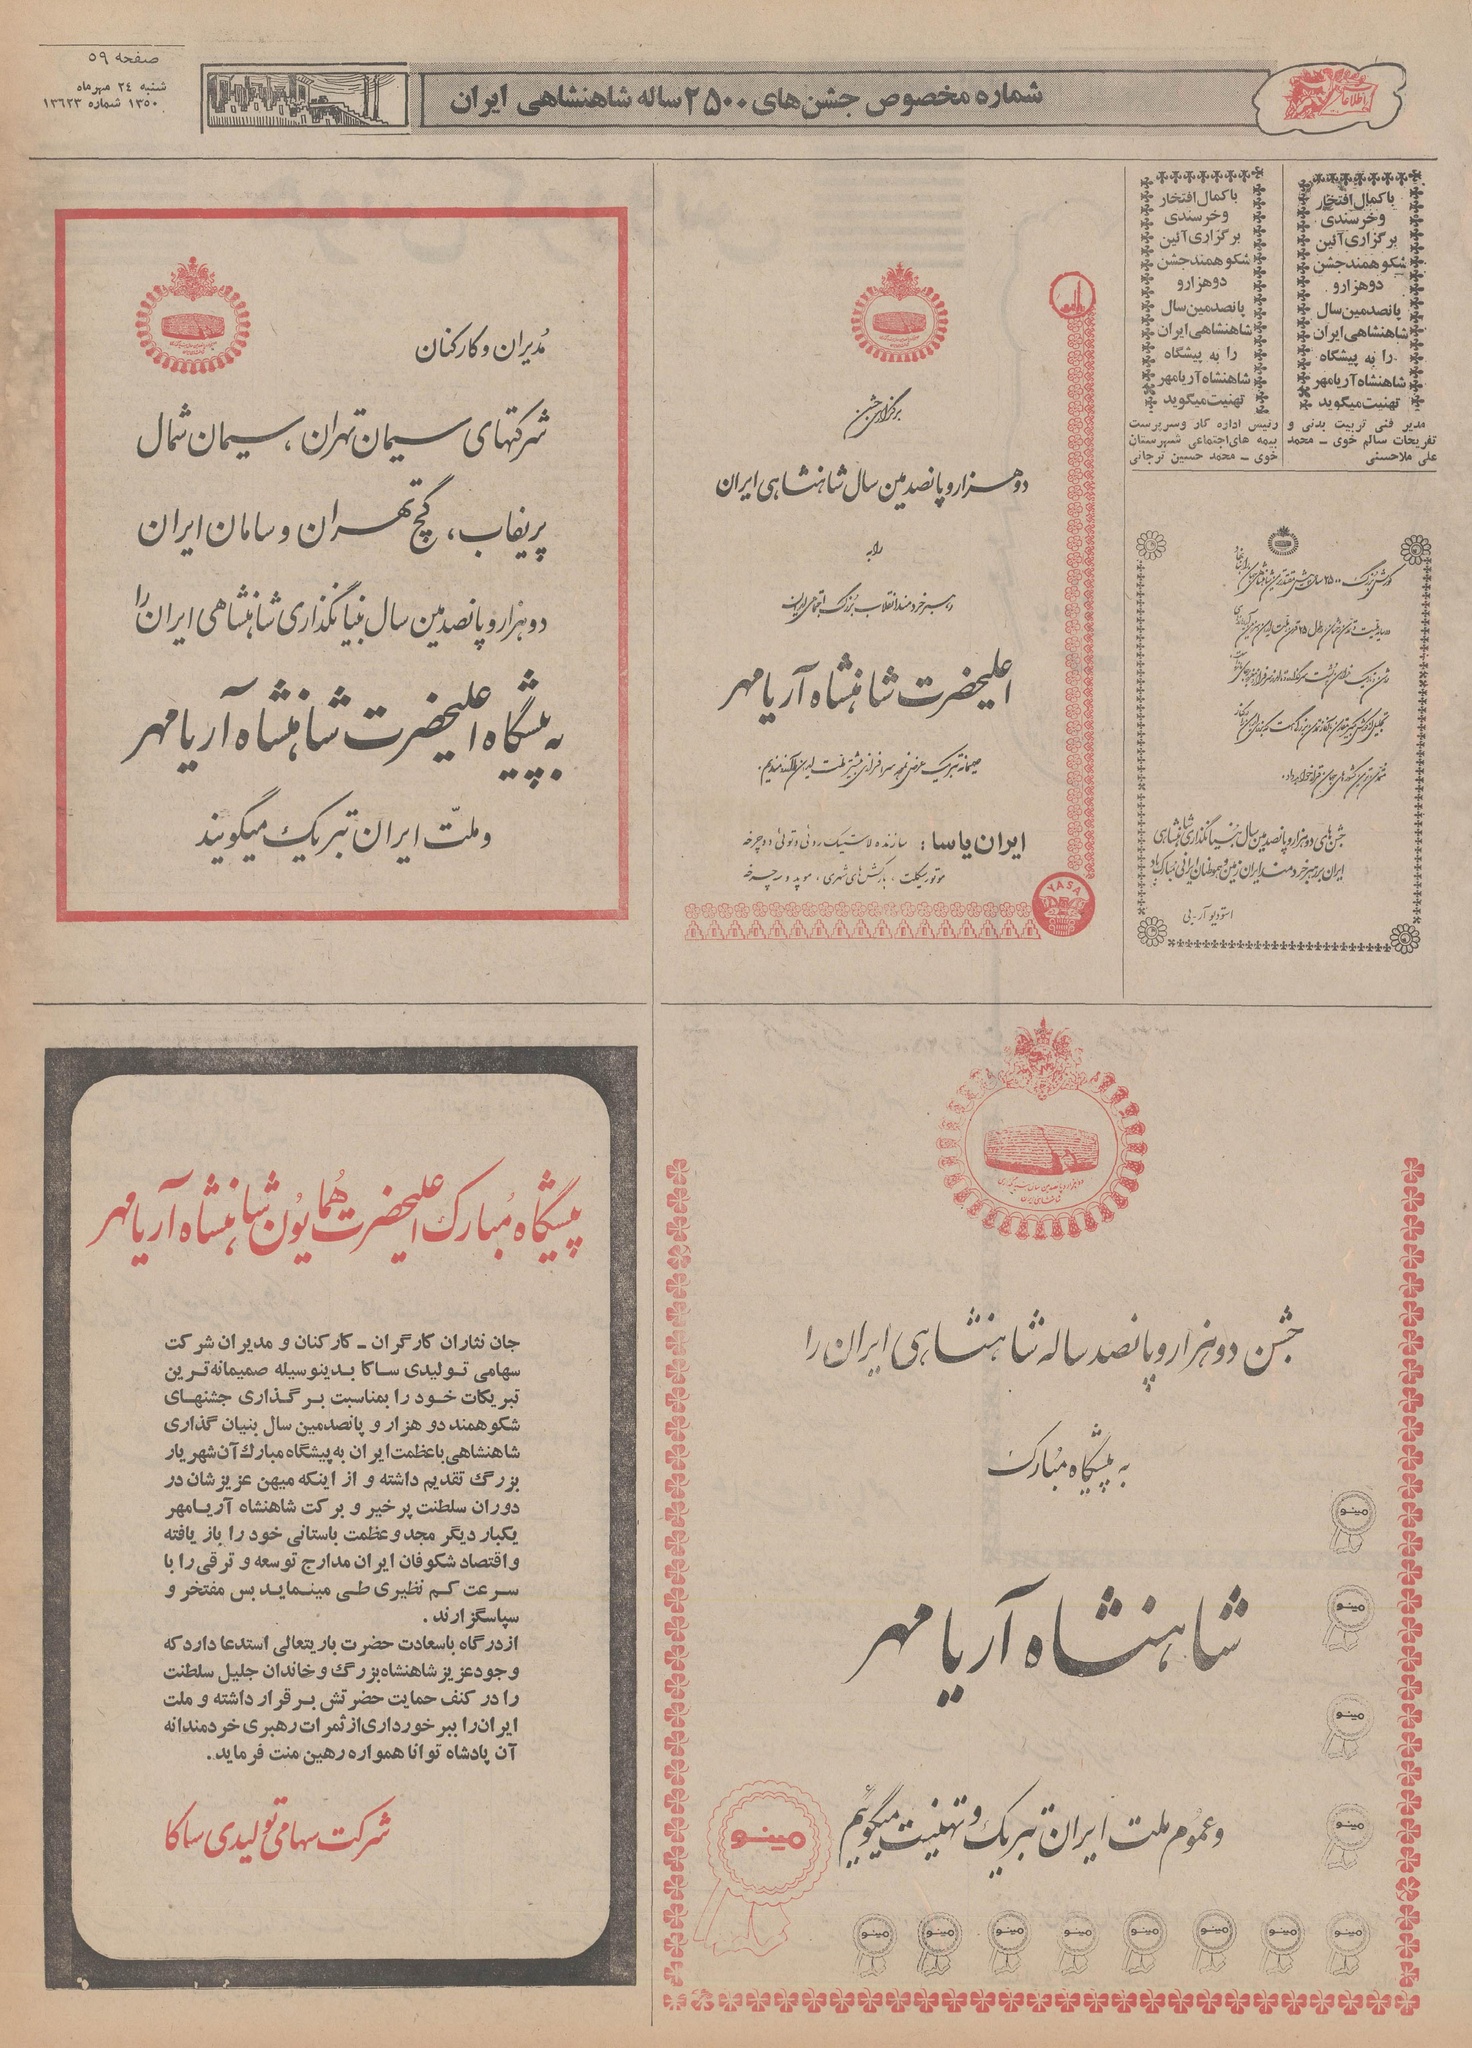 صفحه ۵۹
شنبه ۲۴ مهرماه
۱۳۵۰ شماره ۱۳۶۲۳
شماره مخصوص جشن‌های ۲۵۰۰ ساله شاهنشاهی ایران
اطلاعات
باکمال افتخار
وخرسندی
برگزاری آئین
شکوهمند جشن
دوهزارو
پانصدمین سال
شاهنشاهی ایران
را به پیشگاه
شاهنشاه آریامهر
تهنیت میگوید
مدیر فنی تربیت بدنی و
تفریحات سالم خوی ــ محمد
علی ملاحسنی
باکمال افتخار
وخرسندی
برگزاری آئین
شکوهمند جشن
دوهزارو
پانصدمین سال
شاهنشاهی ایران
را به پیشگاه
شاهنشاه آریامهر
تهنیت میگوید
رئیس اداره کار وسرپرست
بیمه های اجتماعی شهرستان
خوی ــ محمد حسین ترجانی
جشن‌های دوهزارو پانصدمین سال بنیانگذاری شاهنشاهی
ایران بر رهبر خردمند ایران زمین و هموطنان ایرانی مبارک باد
استودیو آر-بی
برگزاری جشن
دوهزارو پانصدمین سال شاهنشاهی ایران
را به
رهبر خردمند انقلاب بزرگ اجتماعی ایران
اعلیحضرت شاهنشاه آریامهر
صمیمانه تبریک عرض نموده سرافرازی بیشتر ملت ایران را آرزومندیم.
ایران یاسا: سازنده لاستیک روئی و توئی دوچرخه
موتورسیکلت، بارکش‌های شهری، موپد و سه‌چرخه
YASA
مدیران و کارکنان
شرکتهای سیمان تهران، سیمان شمال
پریفاب، گچ تهران و سامان ایران
دوهزارو پانصدمین سال بنیانگذاری شاهنشاهی ایران را
به پیشگاه اعلیحضرت شاهنشاه آریامهر
و ملّت ایران تبریک میگویند
دوهزار و پانصدمین سال بنیانگذاری
شاهنشاهی ایران
جشن دوهزارو پانصد ساله شاهنشاهی ایران را
به پیشگاه مبارک
شاهنشاه آریامهر
و عموم ملت ایران تبریک و تهنیت میگوئیم
مینو
مینو
مینو
مینو
مینو
مینو مینو مینو مینو مینو مینو مینو مینو
پیشگاه مبارک اعلیحضرت همایون شاهنشاه آریامهر
جان نثاران کارگران ــ کارکنان و مدیران شرکت
سهامی تولیدی ساکا بدینوسیله صمیمانه‌ترین
تبریکات خود را بمناسبت برگذاری جشنهای
شکوهمند دو هزار و پانصدمین سال بنیان گذاری
شاهنشاهی با عظمت ایران به پیشگاه مبارک آن شهریار
بزرگ تقدیم داشته و از اینکه میهن عزیزشان در
دوران سلطنت پر خیر و برکت شاهنشاه آریامهر
یکبار دیگر مجد و عظمت باستانی خود را باز یافته
و اقتصاد شکوفان ایران مدارج توسعه و ترقی را با
سرعت کم نظیری طی مینماید بس مفتخر و
سپاسگزارند.
از درگاه باسعادت حضرت باریتعالی استدعا دارد که
وجود عزیز شاهنشاه بزرگ و خاندان جلیل سلطنت
را در کنف حمایت حضرتش برقرار داشته و ملت
ایران را ببرخورداری از ثمرات رهبری خردمندانه
آن پادشاه توانا همواره رهین منت فرماید.
شرکت سهامی تولیدی ساکا